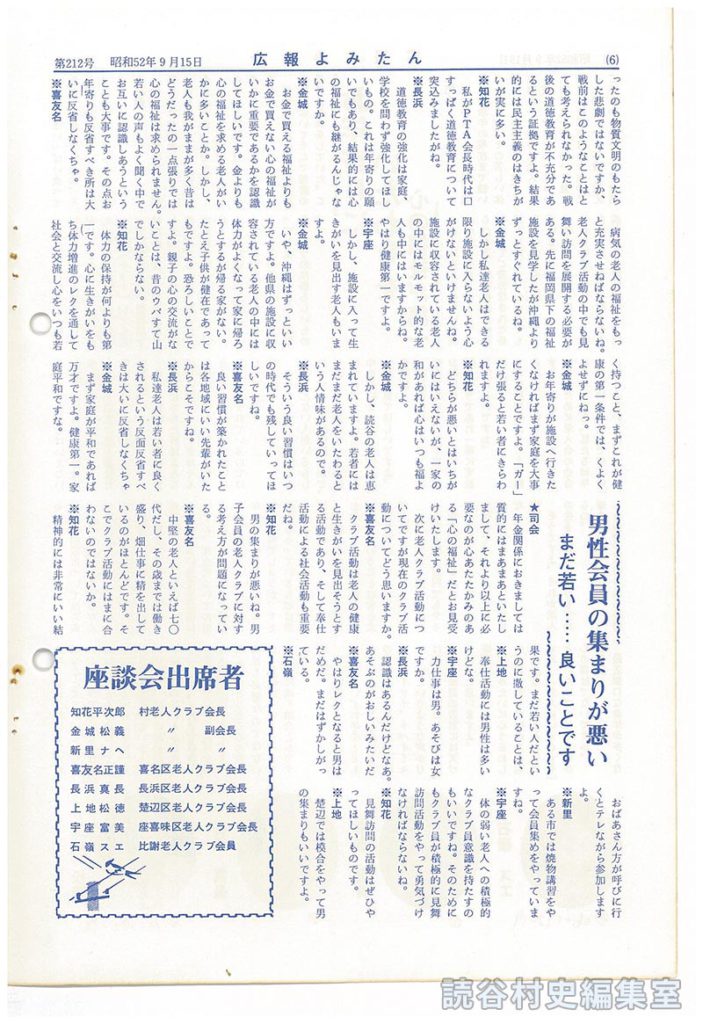 第212号 昭和52年9月15日
広報よみたん
(6)
ったのも物質文明のもたら
した悲劇ではないですか、
戦前はこのようなことはと
ても考えられなかった。戦
後の道徳教育が不充分であ
るという証拠ですよ。結果
的には民主主義のはきちが
いが実に多い。
※知花
私がPTA会長時代は口
すっぱく道徳教育について
突込みましたがね。
※長浜
道徳教育の強化は家庭、
学校を問わず強化してほし
いもの。これは年寄りの願
いでもあり、結果的には心
の福祉にも継がるんじゃな
いですか。
※金城
お金で買える福祉よりも
お金で買えない心の福祉が
いかに重要であるかを認識
してほしいです。金よりも
心の福祉を求める老人がい
かに多いことか。しかし、
老人も我がままが多く昔は
どうだったの一点張りでは
心の福祉は求められません。
若い人の声もよく聞く中で
お互いに認識しあうという
ことも大事です。その点お
年寄りも反省すべき所は大
いに反省しなくちゃ。
※喜友名
病気の老人の福祉をもっ
と充実させねばならないね。
老人クラブ活動の中でも見
舞い訪問を展開する必要が
ある。先に福岡県下の福祉
施設を見学したが沖縄より
ずっとすぐれているね。
※金城
しかし私達老人はできる
限り施設に入らないよう心
がけないといけませんね。
施設に収容されている老人
の中にはモルモット的な老
人も中にはいますからね。
やはり健康第一ですよ。
※宇座
しかし、施設に入って生
きがいを見出す老人もいま
すよ。
※金城
いや、沖縄はずっといい
方ですよ。他県の施設に収
容されている老人の中には
体力がよくなって家に帰ろ
うとするが帰る家がない。
たとえ子供が健在であって
もですよ。恐ろしいことで
すよ。親子の心の交流がな
いことは、昔のウバすて山
でしかならない。
※知花
体力の保持が何よりも第
一です。心に生きがいをも
ち体力増進のレクを通して
社会と交流し心をいつも若
く持つこと、まずこれが健
康の第一条件では、くよく
よせずにねっ。
※金城
お年寄りが施設へ行きた
くなければまず家庭を大事
にすることですよ。「ガー」
だけ張ると若い者にきらわ
れますよ。
※知花
どちらが悪いとはいちが
いにはいえないが、一家の
和があれば心はいつも福よ
かですよ。
しかし、読谷の老人は恵
まれていますよ。若者には
まだまだ老人をいたわると
いう人情味があるので。
そういう良い習慣はいつ
の時代でも残していってほ
しいですね。
※喜友名
良い習慣が築かれたこと
は各地域にいい先輩がいた
からこそですね。
※長浜
私達老人は若い者に良く
されるという反面反省すべ
きは大いに反省しなくちゃ
※金城
まず家庭が平和であれば
万才ですよ。健康第一。家
庭平和ですな。
男性会員の集まりが悪い
まだ若い……良いことです
★司会
年金関係におきましては
質的にはまあまあといたし
まして、それより以上に必
要なのが心あたたかみのあ
る「心の福祉」だとお見受
けいたします。
次に老人クラブ活動につ
いてですが現在のクラブ活
動についてどう思いますか。
※喜友名
クラブ活動は老人の健康
と生きがいを見出そうとす
る活動であり、そして奉仕
活動による社会活動も重要
だね。
※知花
男の集まりが悪いね。男
子会員の老人クラブに対す
る考え方が問題になってい
る。
※喜友名
中堅の老人といえば七〇
代だし、その歳までは働き
盛り、畑仕事に精を出して
いるのがほとんどです。そ
こでクラブ活動にはまに合
わないのではないか。
※知花
精神的には非常にいい結
果です。まだ若い人だとい
うのに徹していることは、
※上地
奉仕活動には男性は多い
けどな。
※宇座
力仕事は男。あそびは女
ですか。
※長浜
認識はあるんだけどなあ。
あそぶのがおしいみたいだ
※喜友名
やはりレクとなると男は
だめだ。まだはずかしがっ
ている。
※石嶺
おばあさん方が呼びに行
くとテレながら参加します
よ。
※新里
ある市では焼物講習をや
って会員集めをやっていま
すね。
※宇座
体の弱い老人への積極的
なクラブ員意識を持たすの
もいいですね。そのために
もクラブ員が積極的に見舞
訪問活動をやって勇気づけ
なければならないね。
※知花
見舞訪問の活動はぜひや
ってほしいものです。
※上地
楚辺では模合をやって男
の集まりもいいですよ。
座談会出席者
知花平次郎 村老人クラブ会長
金城松義 〃 副会長
新里ナヘ 〃 〃
喜友名正謹 喜名区老人クラブ会長
長浜真長 長浜区老人クラブ会長
上地松徳 楚辺区老人クラブ会長
宇座富美 座喜味区老人クラブ会長
石嶺スエ 比謝老人クラブ会員
読谷村史編集室